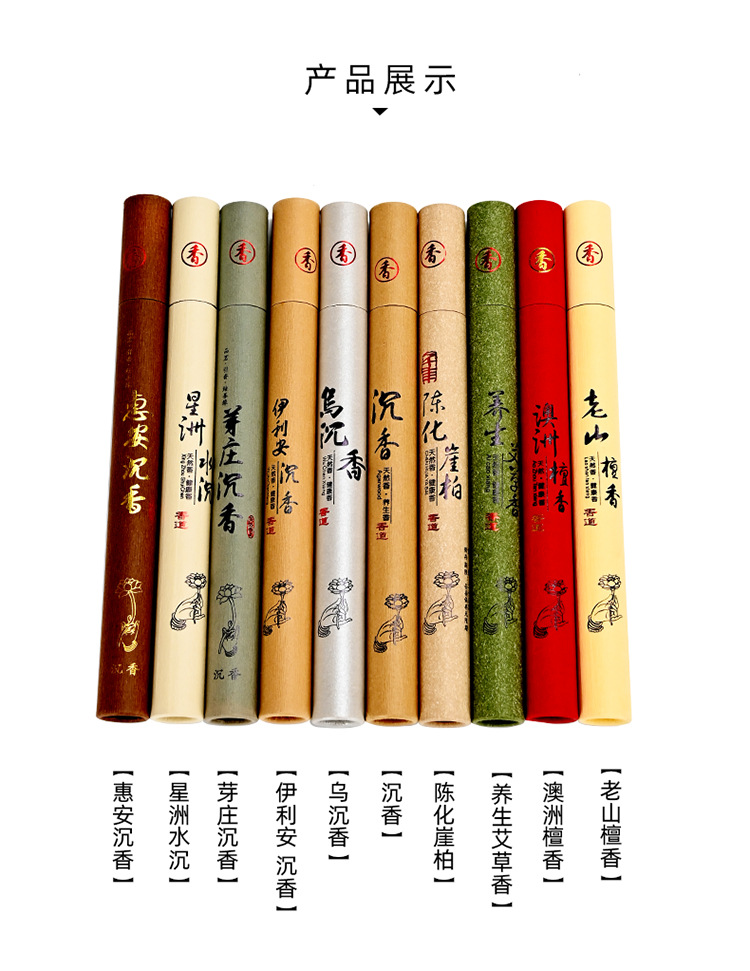 产品展示
香
香
香
香
香
香
香
香
香
香
品茗·引香·结善缘
惠安沉香
沉香
星洲水沉
天然香·健康香
香道
芽庄沉香
沉香
伊利安沉香
天然香·健康香
香道
乌沉香
天然香·健康香
香道
沉香
天然香·养生香
Agarwood
香道
陈化崖柏
天然香·健康香
香道
养生艾草香
天然香·健康香
香道
澳洲檀香
天然香·健康香
香道
老山檀香
天然香·健康香
香道
【惠安沉香】
【星洲水沉】
【芽庄沉香】
【伊利安 沉香】
【乌沉香】
【沉香】
【陈化崖柏】
【养生艾草香】
【澳洲檀香】
【老山檀香】